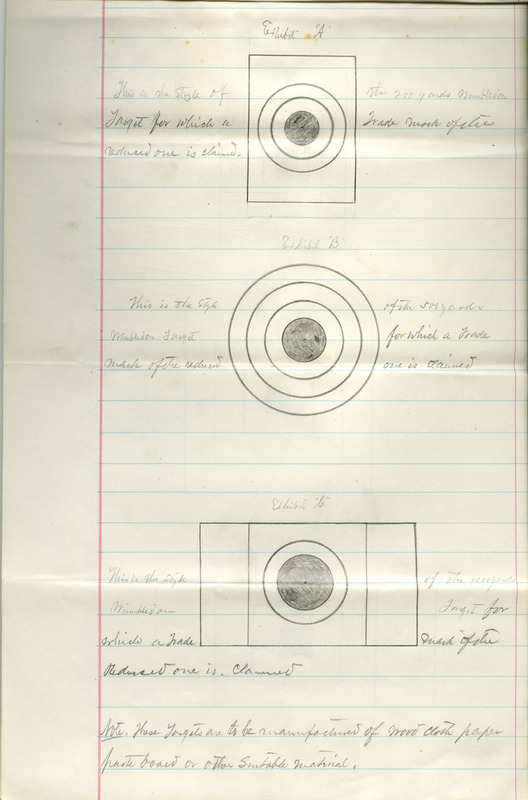 Exhibit "A"
This is the Style of the 200 yards Wimbledon
Target for which a Trade mark of the
reduced one is claimed.
Exhibit "B"
This is the Style of the 500 yards
Wimbledon Target for which a Trade
mark of the reduced one is claimed
Exhibit "C"
This is the Style of the 1000 yards
Wimbledon Target for
which a Trade mark of the
Reduced one is. Claimed
Note. These Targets are to be manufactured of wood cloth paper
paste board or other Suitable material.